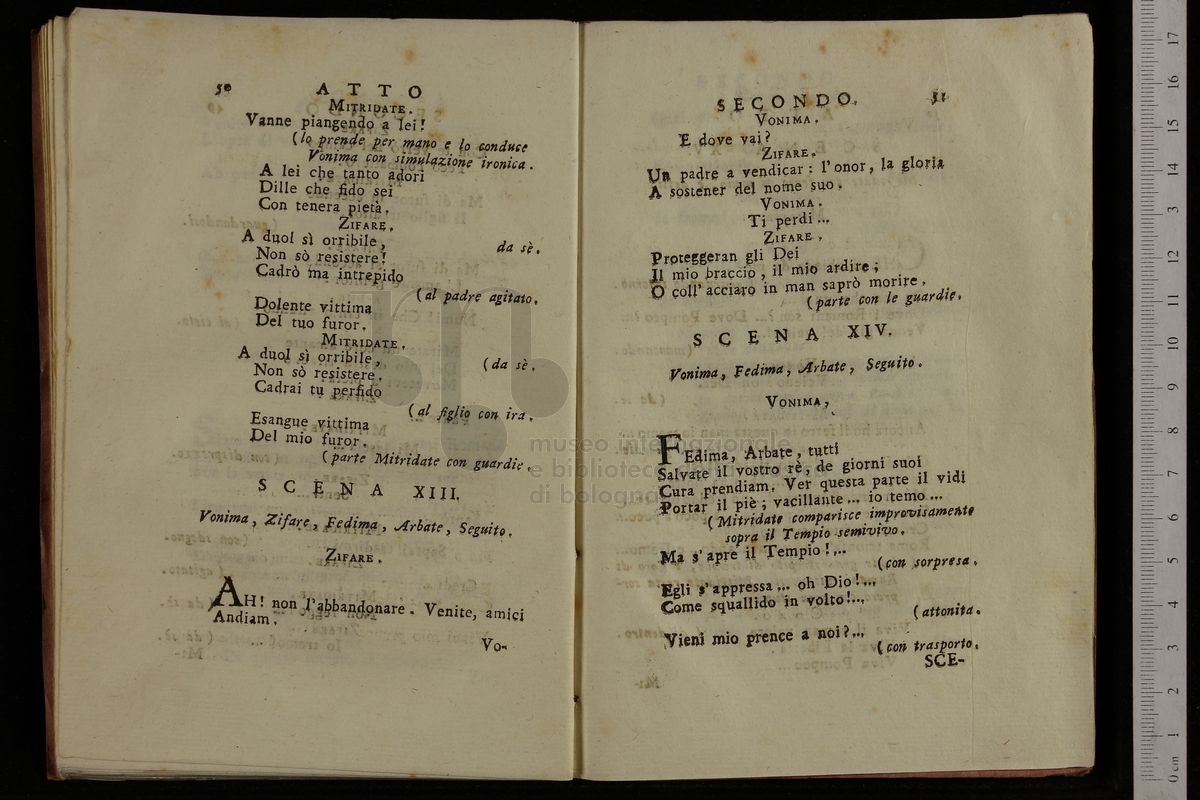 50 ATTO
MITRIDATE.
Vanne piangendo a lei!
(lo prende per mano e lo conduce
Vonima con simulazione ironica.
A lei che tanto adori
Dille che fido sei
Con tenera pietà.
ZIFARE.
A duol sì orribile, da sè.
Non sò resistere!
Cadrò ma intrepido
(al padre agitato.
Dolente vittima
Del tuo furor.
MITRIDATE.
A duol sì orribile, (da sè.
Non sò resistere.
Cadrai tu perfido
(al figlio con ira.
Esangue vittima
Del mio furor.
(parte Mitridate con guardie.
SCENA XIII.
Vonima, Zifare, Fedima, Arbate, Seguito.
ZIFARE.
AH! non l'abbandonare. Venite, amici
Andiam.
Vo-
SECONDO. 51
VONIMA.
E dove vai?
ZIFARE.
Un padre a vendicar: l'onor, la gloria
A sostener del nome suo.
VONIMA.
Ti perdi...
ZIFARE.
Proteggeran gli Dei
Il mio braccio, il mio ardire;
O coll'acciaro in man saprò morire.
(parte con le guardie.
SCENA XIV.
Vonima, Fedima, Arbate, Seguito.
VONIMA.
FEdima, Arbate, tutti
Salvate il vostro rè, de giorni suoi
Cura prendiam. Ver questa parte il vidi
Portar il piè; vacillante... io temo...
(Mitridate comparisce improvisamente
sopra il Tempio semivivo.
Ma s'apre il Tempio!...
(con sorpresa.
Egli s'appressa... oh Dio!...
Come squallido in volto!...
(attonita.
Vieni mio prence a noi?...
(con trasporto.
SCE-
museo internazionale
e biblioteca
di bologna
0 cm 1 2 3 4 5 6 7 8 9 10 11 12 13 14 15 16 17